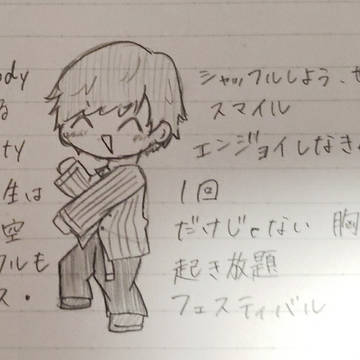 ody シャッフルしよう、せ
る スマイル
ty エンジョイしなき
生は 1回
空 だけじゃない 胸
フルも 起き放題
ス・ フェスティバル